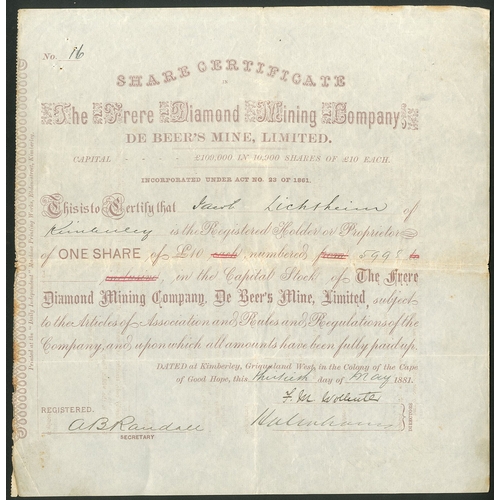 No. 16
SHARE CERTIFICATE
IN
The Frere Diamond Mining Company,
DE BEER'S MINE, LIMITED.
CAPITAL - - - - £100,000 IN 10,000 SHARES OF £10 EACH.
INCORPORATED UNDER ACT NO. 23 OF 1861.
This is to Certify that Jacob Lichtheim of
Kimberley is the Registered Holder or Proprietor
of ONE SHARE of £10 each, numbered from 5998 to
inclusive, in the Capital Stock of The Frere
Diamond Mining Company, De Beer's Mine, Limited, subject
to the Articles of Association and Rules and Regulations of the
Company, and upon which all amounts have been fully paid up.
DATED at Kimberley, Griqualand West, in the Colony of the Cape
of Good Hope, this thirtieth day of May 1881.
REGISTERED.
A B Randall
SECRETARY
DIRECTORS
Printed at the "Daily Independent" Machine Printing Works, Kimberley.